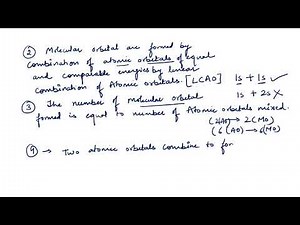 ② Molecular orbital are formed by
combination of atomic orbitals of equal
and comparable energies by linear
combination of Atomic orbitals. [LCAO] 1s + 1s ✓
1s + 2s X
③ The number of molecular orbital
formed is equal to number of Atomic orbitals mixed.
(2AO → 2(MO)
(6(AO) → 6(MO)
④ → Two atomic orbitals combine to for